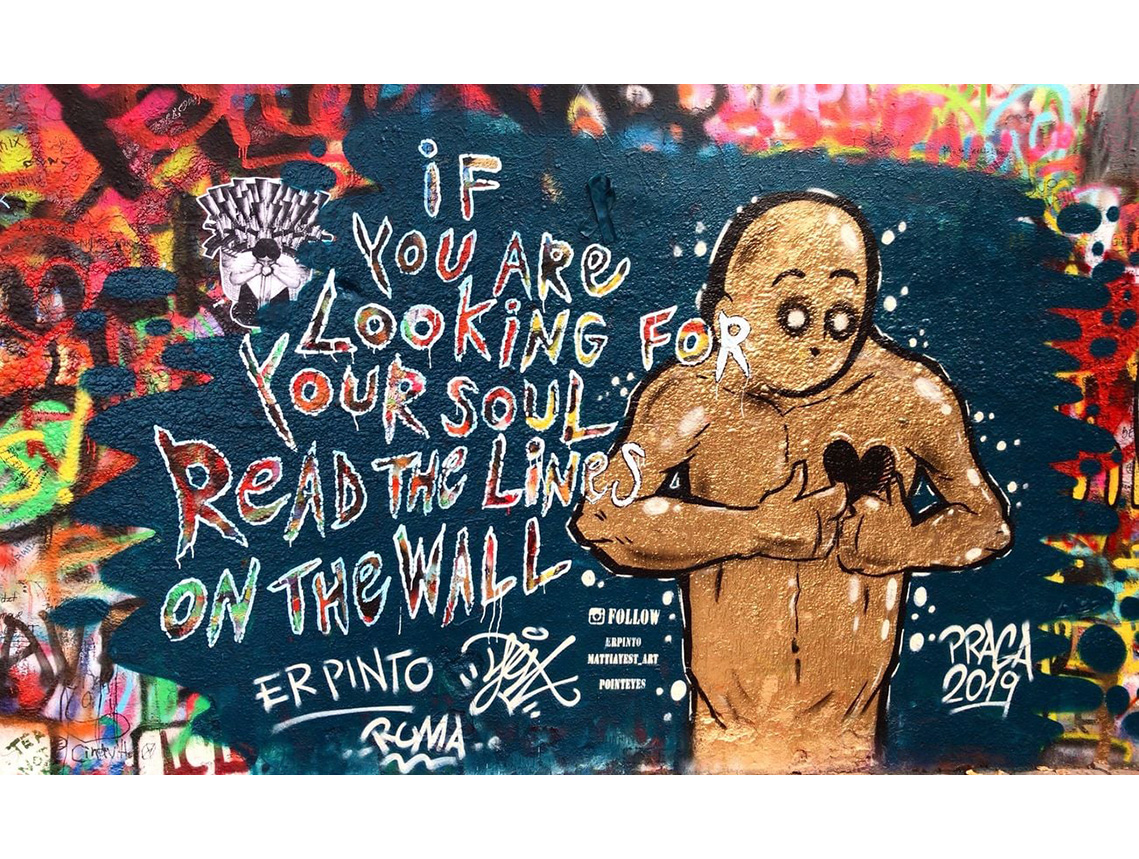 iF
YOU ARe
LOOKiNG FOR
YOUR SOUL
ReAD THe LiNes
ON THe WALL
ERPINTO
ROMA
FOLLOW
ERPINTO
MATTIAYEST_ART
POINTEYES
PRAGA
2019